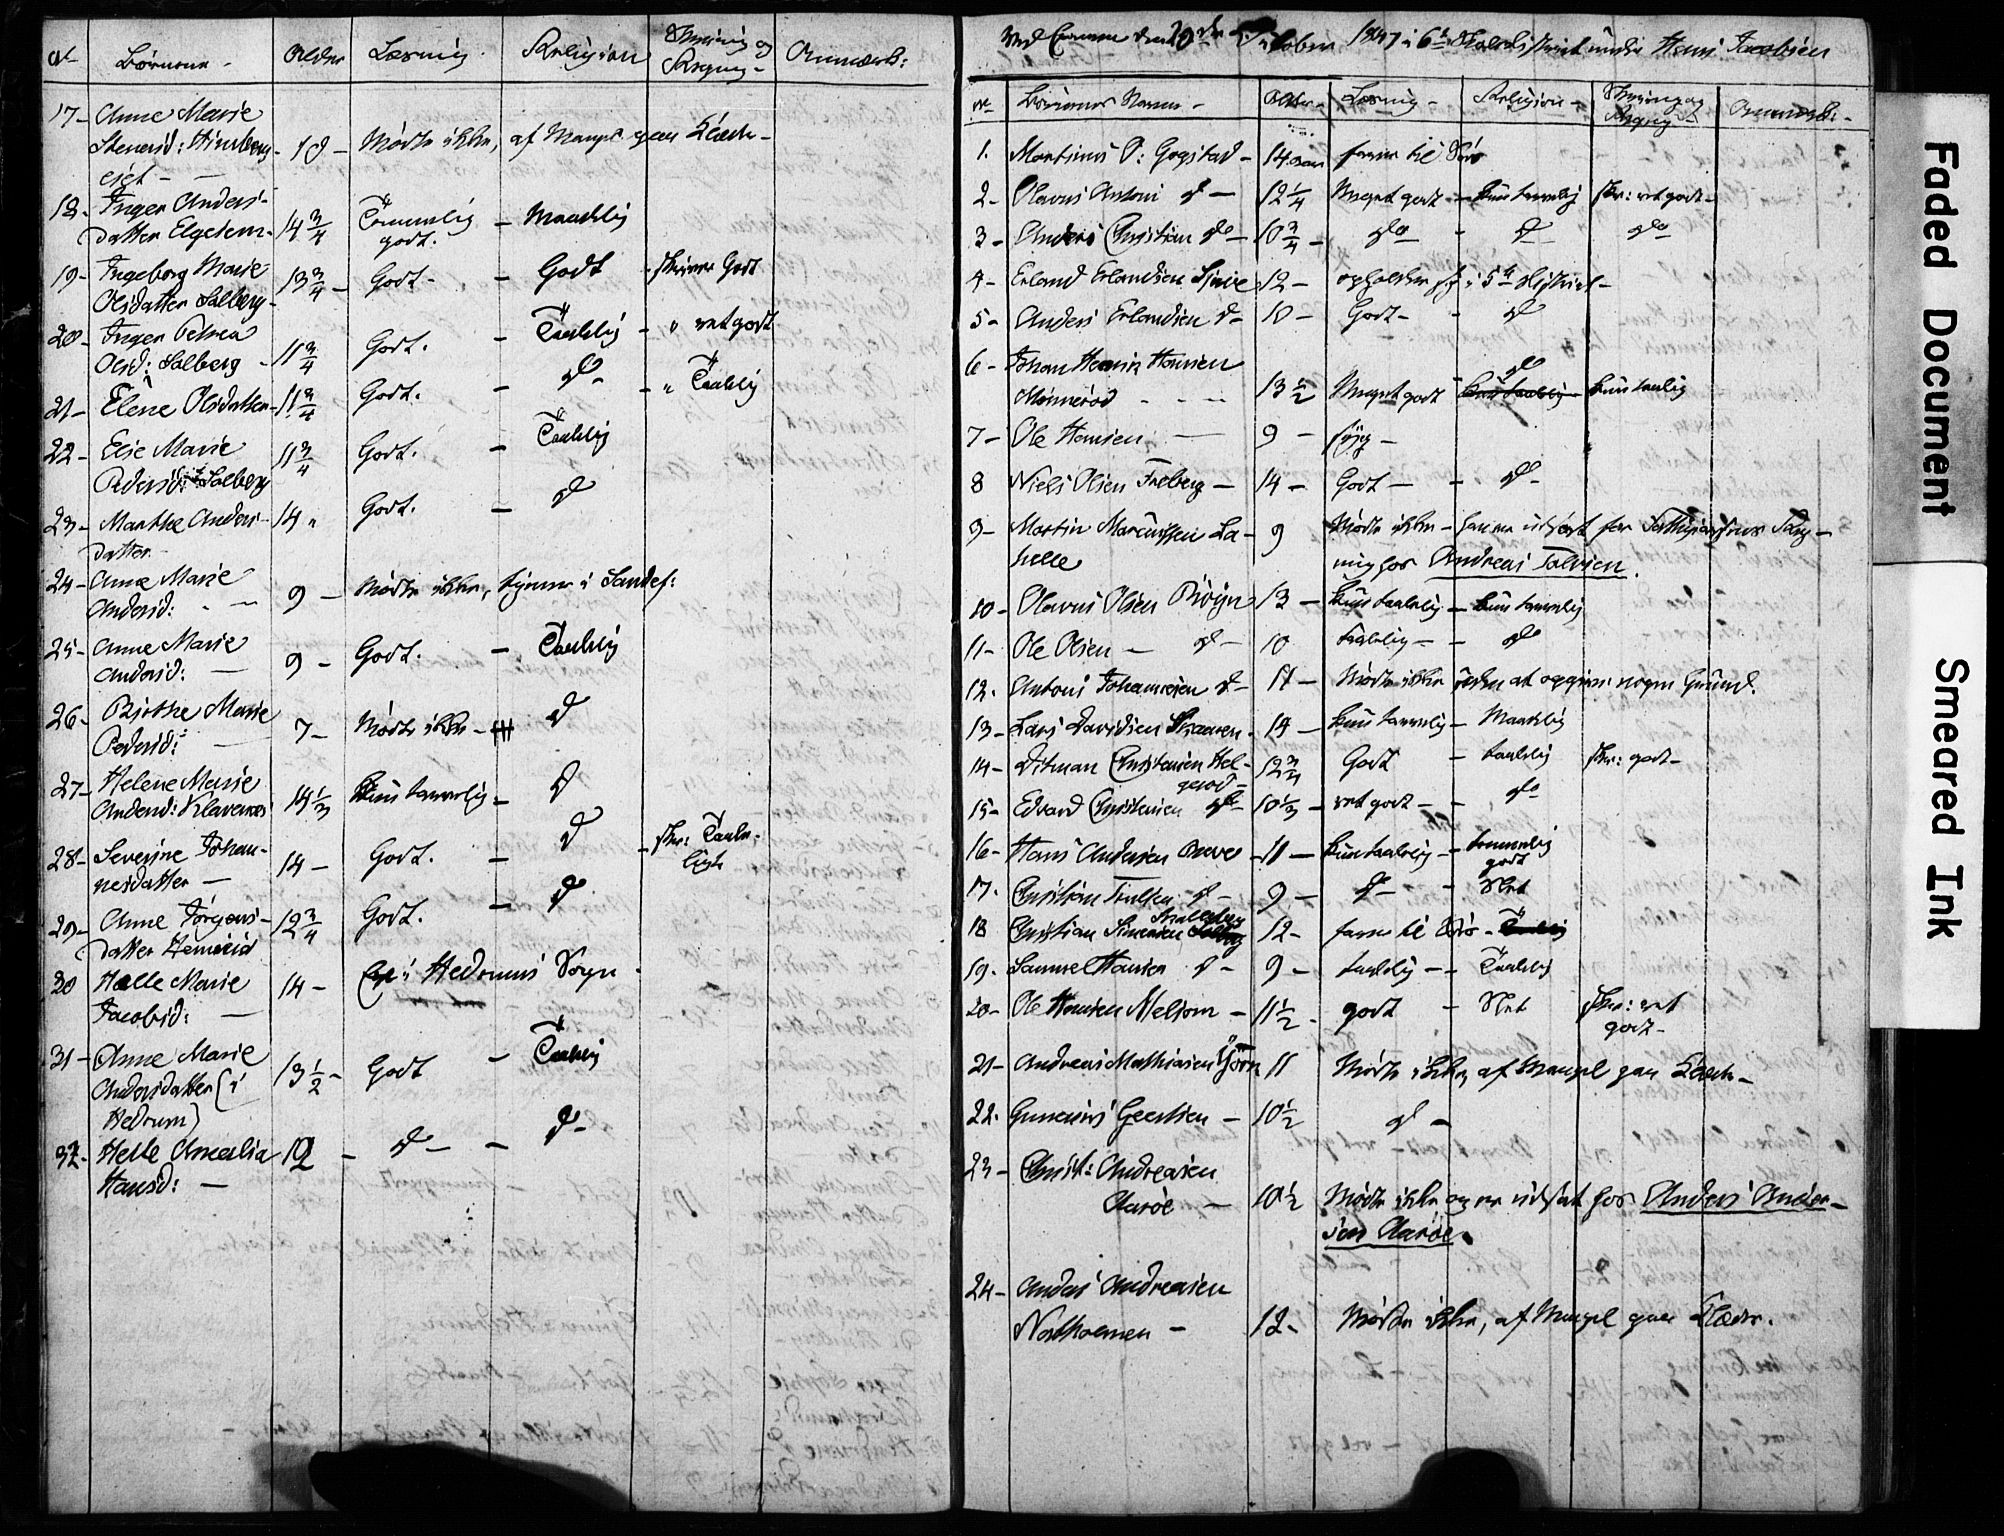 No Børnene - Alder Læsning Religion Skrivning og Regning - Anmærk:
17- Anne Marie
Stenersd: - 10 - Mødte ikke, af Mangel paa Klæder -
eiet -
18- Inger Anders-
datter Elgesem - 14 3/4 Temmelig godt. - Maadelig
19- Ingeborg Marie
Olsdatter Solberg - 13 3/4 - Godt - - Godt - skriver Godt
20- Inger Petrea
Olsd: Solberg - 11 3/4 Godt. - Taalelig - " ret godt
21- Elene Olsdatter - 11 3/4 Godt. - do - - " Taalelig
22- Else Marie
Pedersd: Solberg 11 3/4 Godt. - Taalelig
23- Marthe Anders-
datter 14 " Godt. - do
24- Anne Marie
Andersd: - 9 - Mødte ikke, tjener i Sandef:
25- Anne Marie
Andersd: - 9 - Godt. - Taalelig
26- Birthe Marie
Pedersd: - 7 - Mødte ikke - do
27- Helene Marie
Andersd: Klavenes 14 1/3 kun temmelig - do
28- Severine Johan-
nesdatter - 14 - Godt. - do - skr: Taale-
ligt
29- Anne Jørgens-
datter 12 3/4 Godt. - do
30 Helle Marie
Jacobsd: - 14 - i Hedrums Sogn
31- Anne Marie
Andersdatter (i
Hedrum) 13 1/2 - Godt - Taalelig
32- Helle Amalia
Hansd: - 12 - do - - do -
Ved Examen den 20de October 1847 i 6te Skoledistrict under Hans Jacobsen
No Børnenes Navne - Alder - Læsning - Religion - Skrivning og Regning - Anmærk: -
1. Martinus O: Gogstad - 14 aar farer til Søes
2- Olavus Antoni do - 12 1/4 Meget godt - kun temmelig skr: ret godt -
3- Anders Christian do - 10 3/4 - do - do do
4- Erland Erlandsen 12 - opholder sig i 5te District -
5- Anders Erlandsen do - 10 - Godt - - do
6- Johan Henrik Hansen
- - - 13 1/2 Meget godt - do kun taalelig
7- Ole Hansen - 9 - syg -
8 Niels Olsen - 14 - Godt - - do -
9- Martin Marcussen La-
helle 9 Mødte ikke -
ning hos Andreas
10- Olavus Olsen 13 - kun taalelig - kun temmelig
11- Ole Olsen - do - 10 taalelig - - do
12. Antoni Johannesen do - 11 - Mødte ikke uden at opgive nogen Grund.
13- Lars Davidsen 14 - kun temmelig - Maadelig
14- Ditman Christensen Hel-
gerod - 12 3/4 Godt - taalelig skr: godt -
15- Edvard Christensen do - 10 1/3 - ret godt - - do
16- Hans Andersen - 11 - kun taalelig - temmelig
godt
17. Christian do - 9 - do - - Slet
18 Christian Simensen 12 - farer til Søes -
19. Samuel Hansen do - 9 - taalelig - - Taalelig
20- Ole Hansen Melsom - 11 1/2 - godt - Slet skr: ret
godt -
21- Andreas Mathiasen 11 Mødte ikke, af Mangel paa Klæder -
22. Gunerius Geertsen - 10 1/2 do -
23- Christ: Andreasen
Aarøe - 10 1/2 Mødte ikke, og er udsat hos Anders Ander-
sen Aarøe.
24- Anders Andreasen
- 12 - Mødte ikke, af Mangel paa Klæder.
Faded Document
Smeared Ink